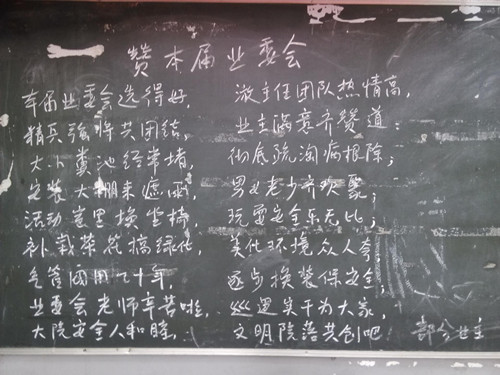 赞本届业委会
本届业委会选得好,　派主任团队热情高,
精兵强将共团结,　业主满意齐赞道:
大小粪池经常堵,　彻底疏淘病根除;
安装大棚来遮雨,　男女老少齐欢聚;
活动室里换坐椅,　玩耍安全乐无比;
补栽茶花搞绿化,　美化环境众人夸;
气管困用二十年,　逐步换装保安全;
业委会老师辛苦啦,　巡逻实干为大家,
大院安全人和睦,　文明院落共创吧　部分业主